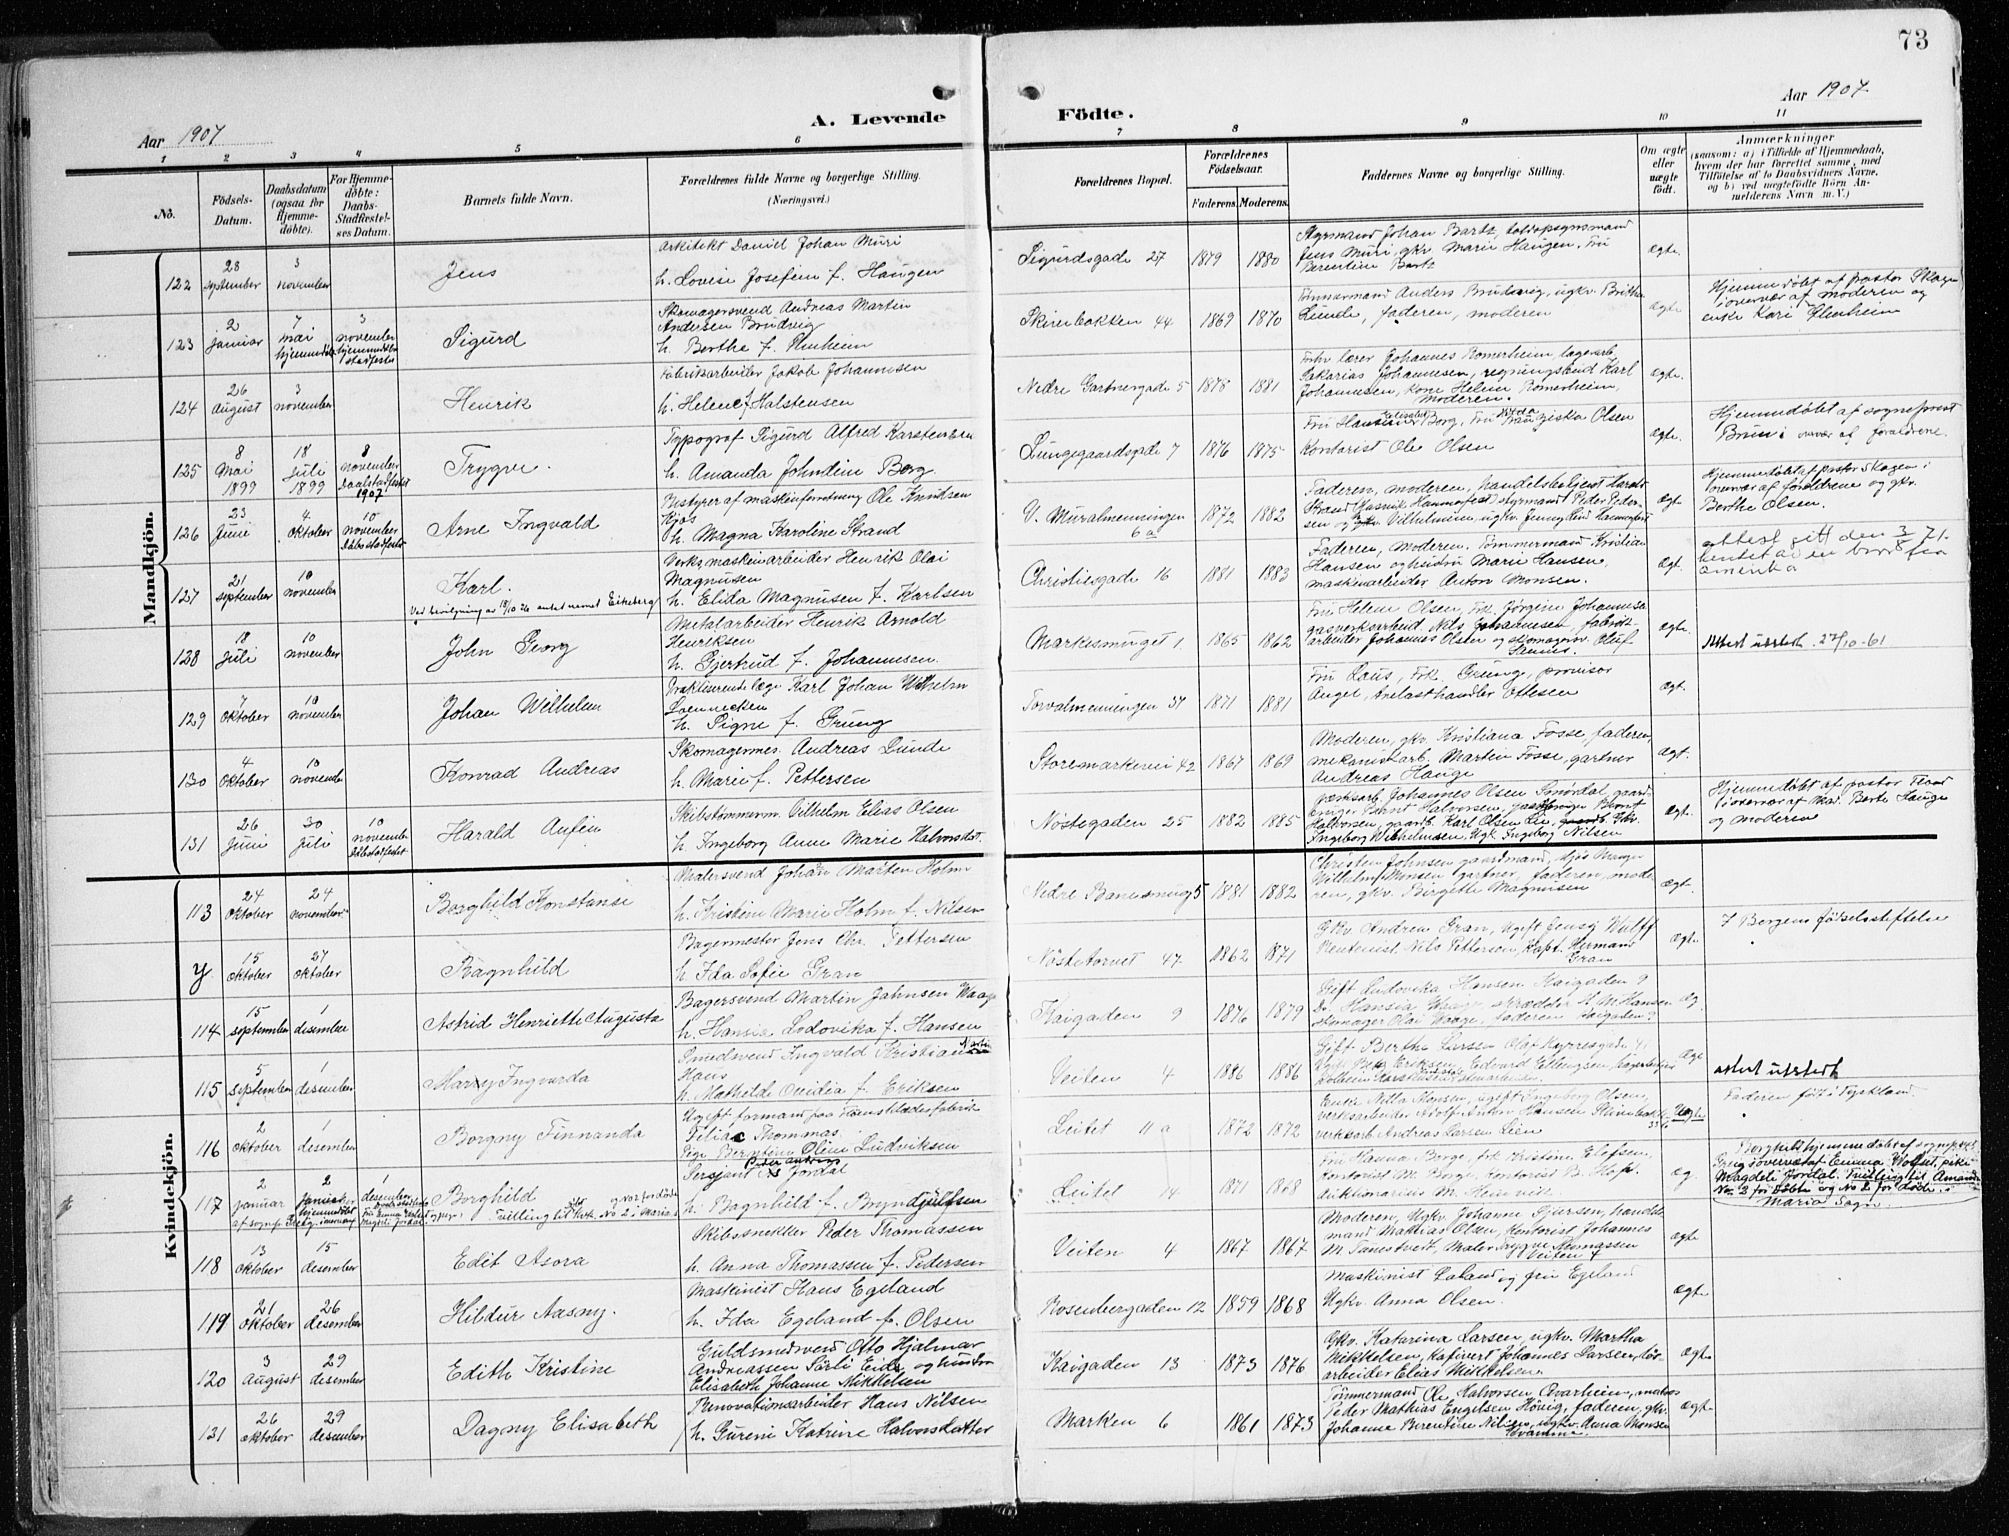 73
Aar 1907
A. Levende
Födte.
Aar 1907.
1 2 3 4 5 6 7 8 9 10 11
No.
Födsels-Datum.
Daabsdatum (ogsaa for Hjemme-döbte).
For Hjemme-döbte: Daabs-Stadfæstel-ses Datum.
Barnets fulde Navn.
Forældrenes fulde Navne og borgerlige Stilling.
(Næringsvei.)
Forældrenes Bopæl.
Forældrenes Födselsaar.
Faderens. Moderens.
Faddernes Navne og borgerlige Stilling.
Om ægte eller uægte födt.
Anmærkninger
(saasom: a) i Tilfælde af Hjemmedaab,
hvem der har forrettet samme, med
Tilföielse af to Daabsvidners Navne,
og b) ved uægtefödte Börn An-
melderens Navn m. V.)
Mandkjön.
122 28 september 3 november Jens
Arkitekt Daniel Johan Muri
h. Lovise Josefine f. Haugen
Sigurdsgade 27 1879 1880
Styrmand Johan Bartz, toldopsynsmand
Jens Muri, gkv. Marie Haugen, Fru
Berentine Bartz
Ægte.
123 2 januar 7 mai hjemmedöbt 3 november hjemmedaab stadfestet Sigurd
Skomagersvend Andreas Martin
Andersen Brudvig
h. Berthe f.
Skivebakken 44 1869 1870
Tömmermand Anders Brudvig, ugkv. Britha
Lunde, faderen, moderen
ægte
Hjemmedöbt af pastor Skagen
i overvær af moderen og
enke Kari
124 26 August 3 november Henrik
Fabrikarbeider Jakob Johannesen
h. Helene f. Halstensen
Nedre Gartnergade 5 1878 1881
Forhv lærer Johannes Romerheim, lagerarb.
Sakarias Johannesen, regningsbud Karl
Johannesen, kone Helene Romerheim,
Moderen.
Ægte.
125 8 Mai 1899 18 Juli 1899 8 november Daabstadfestet 1907 Trygve.
Typograf Sigurd Alfred Karstensen
h. Amanda Johndine Borg
Lungegaardsgade 7 1876 1875
Kontorist Ole Olsen
Ægte.
Hjemmedöbt af sogneprest
Brun i overvær af forældrene.
126 23 Juni 4 oktober 10 november Daabstadfestet Arne Ingvald
Bestyrer af maskinforretning Ole Knutsen
Kjös
h. Magna Karoline Strand
V. Muralmenningen 6a 1872 1882
Faderen, moderen, handelsbetjent Harald
Strand
Ægt.
Hjemmedöbt af pastor Skagen i
overvær af forældrene og gkv.
Berthe Olsen.
127 21 september 10 november Karl.
Ved bevilgning av 18/10 26 antat navnet Eikeberg
Verksmaskinarbeider Henrik Olai
Magnusen
h. Elida Magnusen f. Karlsen
Christiesgade 16 1881 1883
Faderen, moderen. Tömmermand Kristian
Hansen og hustru Marie Hansen,
maskinarbeider Anton Monsen.
Ægt.
attest gitt den 3/5 71.
hentet av en bror fra
amerika
128 18 Juli 10 november John Georg
Metalarbeider Henrik Arnold
Henriksen
h. Gjertrud f. Johannesen.
Markesmuget 1. 1865 1862
Fru Helene Olsen, Frk. Jörgine Johannesen
gasverksarbeid. Nils Johannesen, fabrik-
arbeider Johannes Olsen og skomagersv. Oluf
Ægte
Attest utstedt 27/10-61
129 7 oktober 10 november Johan Wilhelm
Praktiserende læge Karl Johan Wilhelm
Loennecken
h. Signe f. Grung
Torvalmenningen 37 1871 1881
Fru Laus, Frk. Grung, provisor
Angel, Trelasthandler Ottesen
Ægt.
130 4 Oktober 10 novembe Konrad Andreas
Skomagermes. Andreas Lunde
h. Marie f. Pettersen
Storemarkevei 42 1867 1869
Moderen, gkv. Kristiana Fosse, faderen,
mekanistarb. Martin Fosse, gartner
Andreas Hauge
Ægt.
131 26 Juni 30 juli 10 november Dåbstadfestet Harald Anfin
Skibstömmerm. Vilhelm Elias Olsen
h. Ingeborg Anne Marie Halvorsdat.
Nöstegaden 25 1882 1885
Johannes Olsen
Halvorsen, gaardb. Karl Olsen Lie,
Ingeborg Wilhelmsen. Ugk. Ingeborg Nilsen
Ægt.
Hjemmedöbt af pastor
i overvær af Mad. Berte Hauge
og moderen
Kvindekjön.
113 24 oktober 24 november Borghild Konstanse
Malersvend Johan Marten Holm
h. Kristine Marie Holm f. Nilsen
Nedre Banesmug 5 1881 1882
Christen Johnsen gaardmand,
Wilhelm Monsen gartner, faderen, mode-
ren, gkv. Birgithe Magnusen
Ægt.
y 15 oktober 27 oktober Ragnhild
Bagermester Jens Chr. Pettersen
h. Ida Sofie Gran
Nöstetorvet 47 1862 1871
Gkv. Andrea Gran, Ugift Jensy Wulff
Rentenist. Nils Pettersen, Kapt. Hermann
Gran
Ægte
I Bergens fødselsstiftelse
114 15 september 1 desember Astrid Henriette Augusta
Bagersvend Martin Jahnsen Waage
h. Hansia Lodovika f. Hansen
Kaigaden 9 1876 1879
Gift Ludovika Hansen Kaigaden 9
skomager Olai Waage, faderen Kaigaden 9
Æg.
115 5 september 1 desember Mary Ingvarda
Smedsvend Ingvald Kristian
Hans
h. Mathilde f. Eriksen
Veiten 4 1886 1886
Gift Berthe Larsen Olaf Kyrresgade 41
Ægt
attest utstedt
116 2 oktober 1 desember Borgny Finnanda
Ugift formand paa
Thommas.
Pige Berntine Oline Ludviksen
Leitet 11a 1872 1872
Enke Nilla Monsen, ugift Ingeborg Olsen,
verksarb. Andreas Larsen Leien
Uægte
Faderen föt i Tyskland.
117 2 januar 2 Januar hjemmedöbt 1 desember Borghild
Sersjant Peder Jordal
h. Ragnhild f. Bryndjulfsen
Leitet 14 1871 1868
Fru Hanna Berge, frk. Kristine Elofsen,
Kontorist M. Borge, Kontorist B. Hope,
Auktionarius M. Heinvik
Æg
Magdele Jordal. Tvilling til Amanda
No. 3 for döbte og No 2 for döde i
Maria Sogn.
118 13 Oktober 15 desember Edit Asora
Skibssnekker Peder Thomassen
h. Anna Thomassen f. Pedersen
Veiten 4 1867 1867
Moderen, Ugkv. Johanne Sjursen, handels-
mand Mathias Olsen, Kontorist Johannes
M. Tanestveit, Maler Trygve Thomassen
Veiten 4
Ægte
119 21 oktober 26 desember Hildur Aasny.
Maskinist Hans Egeland
h. Ida Egeland f. Olsen
Rosenbergaden 12 1859 1868
Maskinist Laland og fru Egeland
Ugkv. Anna Olsen.
Ægte
120 3 August 29 desember Edith Kristine
Guldsmedsvend Otto Hjalmar
Andreassen Särli Eide og hustru
Elisabeth Johanne Mikkelsen
Kaigaden 13 1873 1876
Gkv. Katarina Larsen, ugkv. Martha
Mikkelsen, Kafivert Johannes Larsen,
arbeider Elias Mikkelsen.
Ægte
131 26 oktober 29 desember Dagny Elisabeth
Renovationsarbeider Hans Nilsen
h. Gureni Katrine Halvorsdatter
Marken 6 1861 1873
Tömmermand Ole Halvorsen Qvarheim, matros
Peder Mathias Engelsen Hövig, faderen, gkv.
Johanne Berentine Nilsen, ugkv. Anna Monsen
Kvamme
Ægte